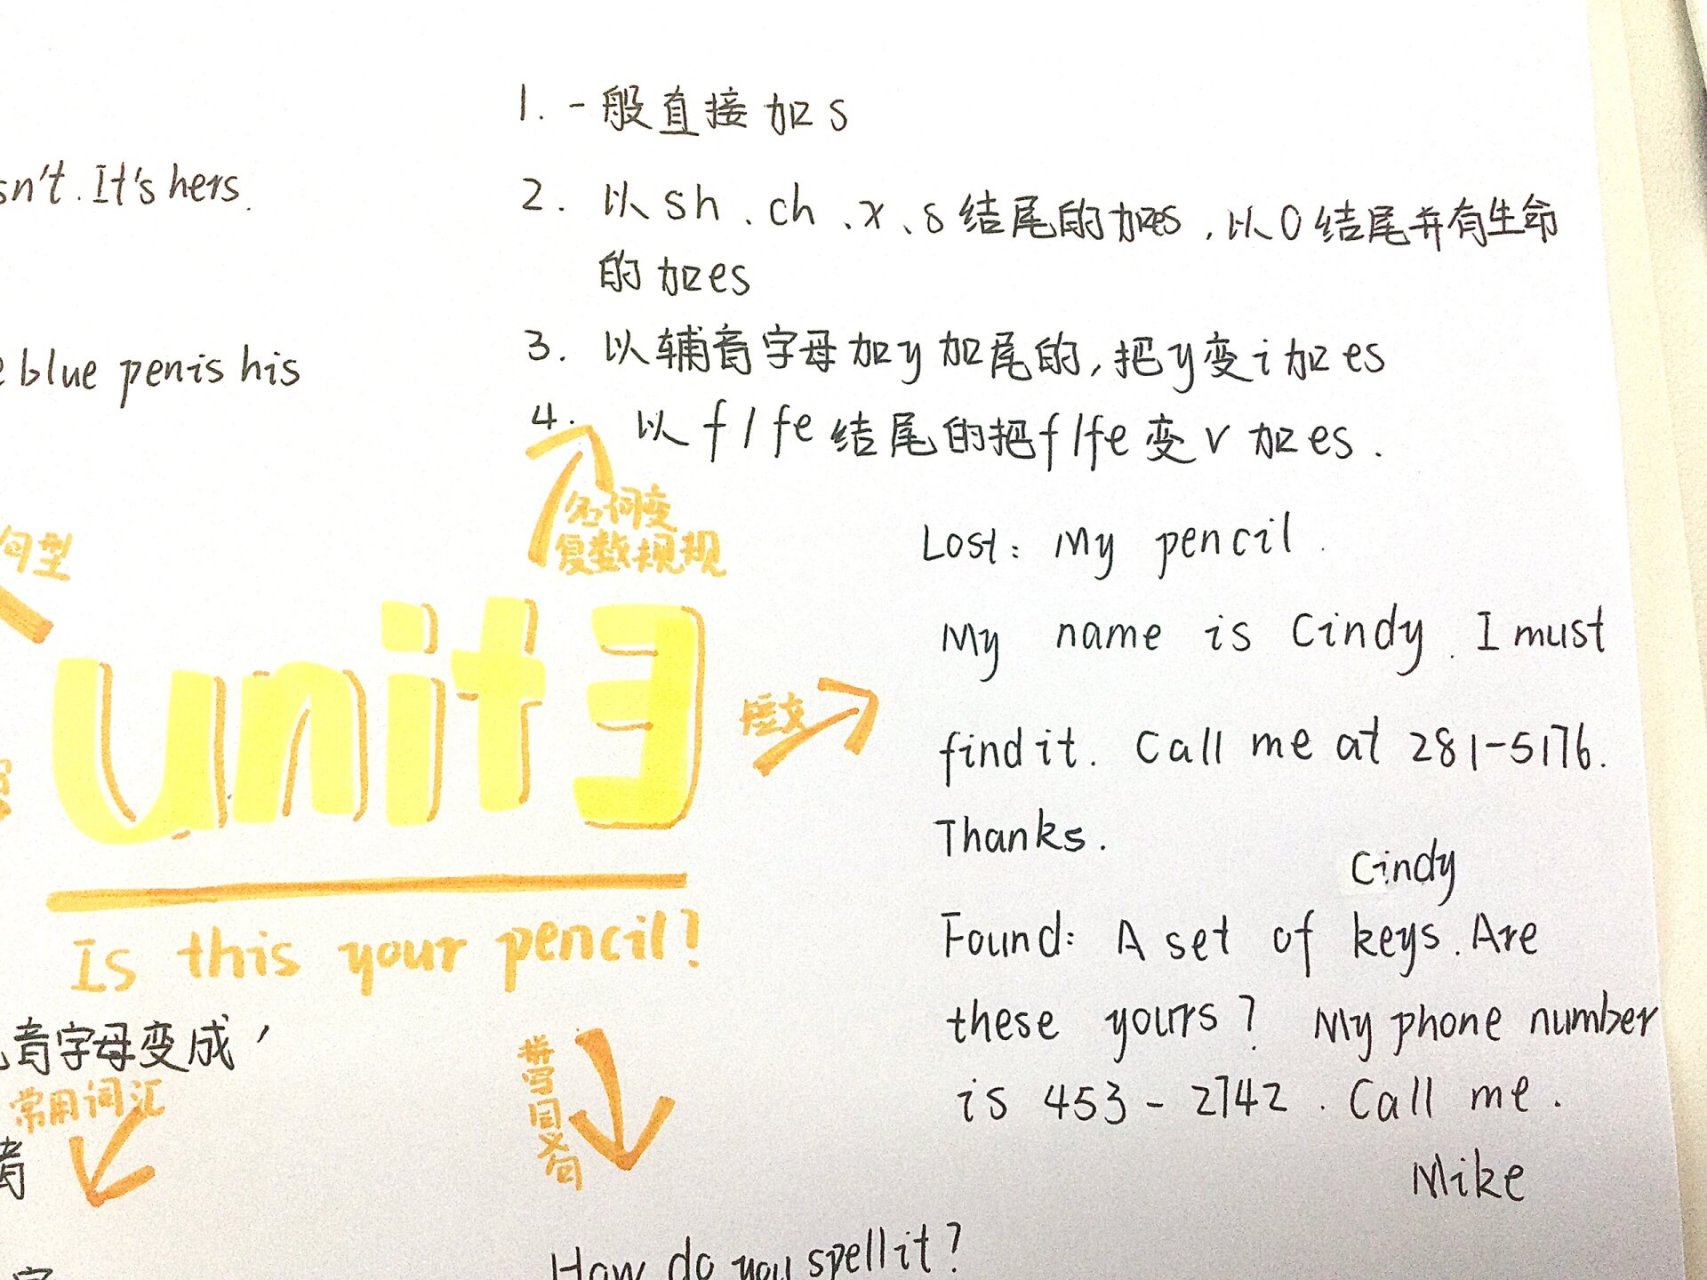 1. 一般直接加s
2. 以sh、ch、x、s结尾的加es，以O结尾并有生命
的加es
3. 以辅音字母加y加尾的，把y变i加es
4. 以f/fe结尾的把f/fe变v加es.
sn't. It's hers.
blue pen is his
句型
名词变
复数规规
unit 3
Is this your pencil?
短文
Lost: My pencil.
My name is Cindy. I must
find it. Call me at 281-5176.
Thanks.
Cindy
Found: A set of keys. Are
these yours? My phone number
is 453-2742. Call me.
Mike
音字母变成'
常用词汇
拼写同义句
How do you spell it?